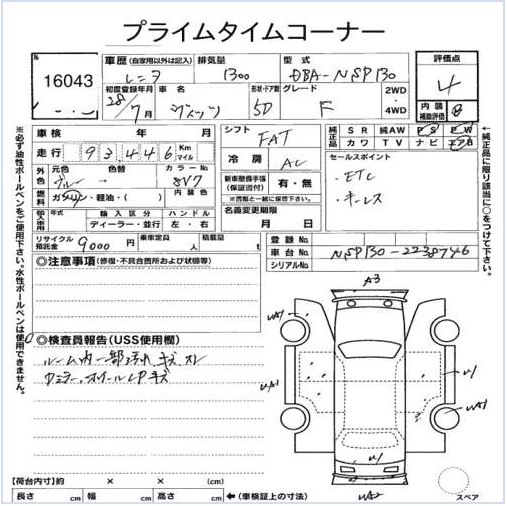 プライムタイムコーナー
No.
16043
車歴(自家用以外は記入)
レンタ
排気量
1300
型式
DBA-NSP130
評価点
4
内装
補助評価
B
初度登録年月
28/7月
車名
ヴィッツ
形状・ドア数
5D
グレード
F
2WD
4WD
車検 年 月
走行 93,446 Km マイル
外色
元色
ブルー
色替
カラーNo.
8V7
燃料
ガソリン・軽油・( )
内装色
輸入車用
年式
輸入区分
ディーラー・並行
ハンドル
左・右
リサイクル預託金
9000円
乗車定員
人
積載量
t
シフト
FAT
冷房
AC
新車整備手帳
(保証書付)
有・無
※書類と一緒に保管下さい。
名義変更期限
月 日
純正品
SR 純AW PS PW
カワ TV ナビ エアB
セールスポイント
・ETC
・キーレス
登録No.
車台No.
NSP130-2238746
シリアルNo.
※必ず油性ボールペンをご使用下さい。水性ボールペンは使用できません。
←純正品に限り該当に○をつけて下さい。
◎注意事項(修復・不具合箇所および状態等)
◎検査員報告(USS使用欄)
ルーム内一部汚れ、キズ、スレ
ウミラー、ホイールCPキズ
A3
UA1
UA1
U1
UA1
U1
UA2
スペア
【荷台内寸】約 × × (cm)
長さ cm 幅 cm 高さ cm ←(車検証上の寸法)